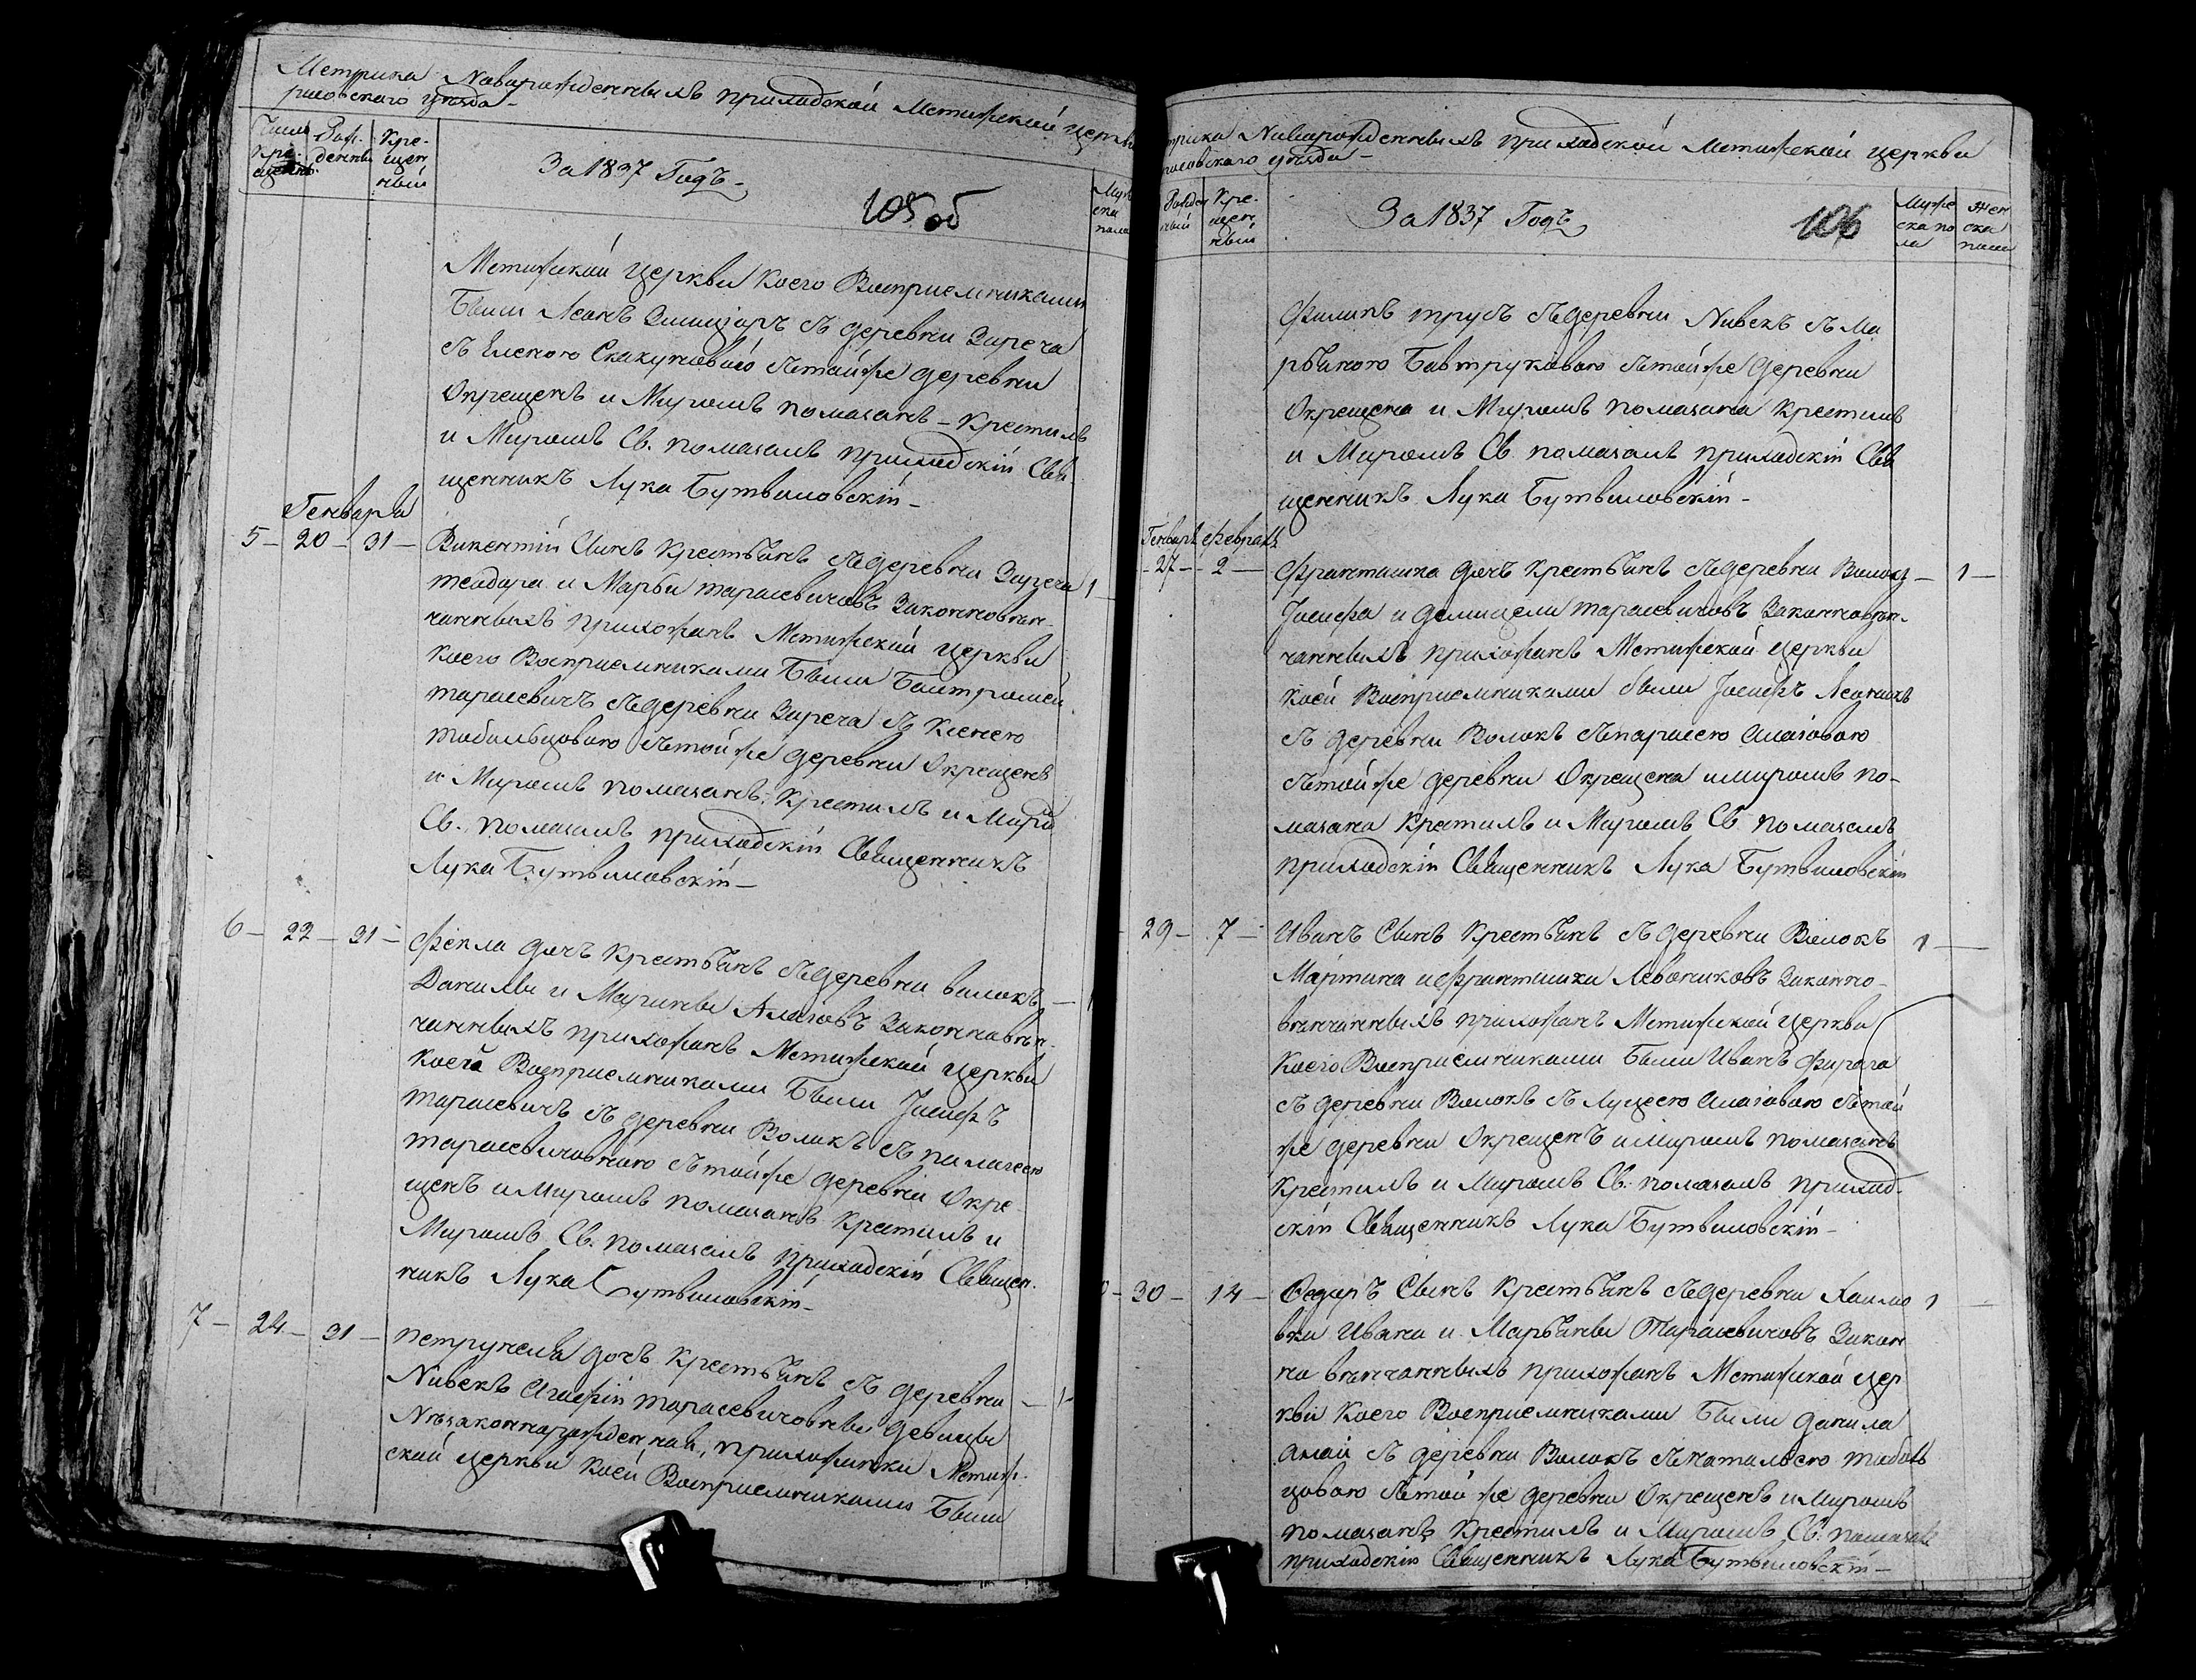 Метрика Навароженныхъ приходской Метижской церкви
рисовского уѣзда
Число Кре- щеныхъ
Рож- денны
Кре- щен ный
За 1837 Годъ
105 об
Муже ска пола
Метижской церкви Коего Восприемниками
были Леонъ съ деревни Зареча
съ Еленою Скакуновою съ той же деревни
Окрещенъ и Миромъ помазанъ – Крестилъ
и Миромъ Св. помазалъ приходскій Свя
щенникъ Лука Бутвиловскій –
Генваря
5 – 20 – 31 – Викентій Сынъ Крестьянъ съ деревни Зареча 1
теадара и Марьи тарасевичовъ Законновѣн-
чанныхъ прихожанъ Метижской церкви
Коего Восприемниками были Балтромей
тарасевичъ съ деревни Зареча съ
той же деревни Окрещенъ
и Миромъ помазанъ; Крестилъ и Миро
Св. помазалъ приходскій Священникъ
Лука Бутвиловскій –
6 – 22 – 31 – Фекла дочъ Крестьянъ съ деревни Волокъ –
Данилы и Марины Алаховъ Законновѣн-
чанныхъ прихожанъ Метижской церкви
Коей Восприемниками были Іосифъ
тарасевичъ съ деревни Волокъ съ
тарасевичовною съ той же деревни Окре-
щенъ и Миромъ помазанъ Крестилъ и
Миромъ Св. помазалъ приходскій Священ-
никъ Лука Бутвиловскій –
7 – 24 – 31 – петрунеля дочъ Крестьянъ съ деревни – 1 –
Нивокъ Агафіи тарасевичовны девицы
Нѣзаконнароженная, прихожанки Метиж-
ской церкви Коей Восприемниками были
Метрика Навароженныхъ приходской Метижской церкви
рисовского уѣзда –
Рожден ный
Кре- щен ный
За 1837 Годъ
106
Муже ска по ла
Жен ска пола
Филипъ трусъ съ деревни Нивокъ съ Ма
рьяною Бавтруковою съ той же деревни
Окрещена и Миромъ помазана Крестилъ
и Миромъ Св. помазалъ приходскій Свя
щенникъ Лука Бутвиловскій –
Генваря Февраля
– 27 – 2 – Франтишка дочъ Крестьянъ съ деревни Волокъ – 1 –
Іосифа и Домицели тарасевичовъ Законновѣн-
чанныхъ прихожанъ Метижской церкви
Коей Восприемниками были Іосифъ
съ деревни Волокъ съ парасею
съ той же деревни Окрещена и миромъ по-
мазана Крестилъ и Миромъ Св. помазалъ
приходскій Священникъ Лука Бутвиловскій
29 – 7 – Иванъ Сынъ Крестьянъ съ деревни Волокъ 1 –
Мартина и Франтишки Левониковъ Законно-
вѣнчанныхъ прихожанъ Метижской церкви
Коего Восприемниками были Иванъ
съ деревни Волокъ съ Луцею съ той
же деревни Окрещенъ и Миромъ помазанъ
Крестилъ и Миромъ Св. помазалъ приход-
скій Священникъ Лука Бутвиловскій –
– 30 – 14 – Ѳедоръ Сынъ Крестьянъ съ деревни Халмо 1
вки Ивана и Марьяны Тарасевичовъ Закон
но вѣнчанныхъ прихожанъ Метижской цер
кви Коего Восприемниками были данила
съ деревни Волокъ съ натальею
цовою съ той же деревни Окрещенъ и Миромъ
помазанъ Крестилъ и Миромъ Св. помазалъ
приходскій Священникъ Лука Бутвиловскій –